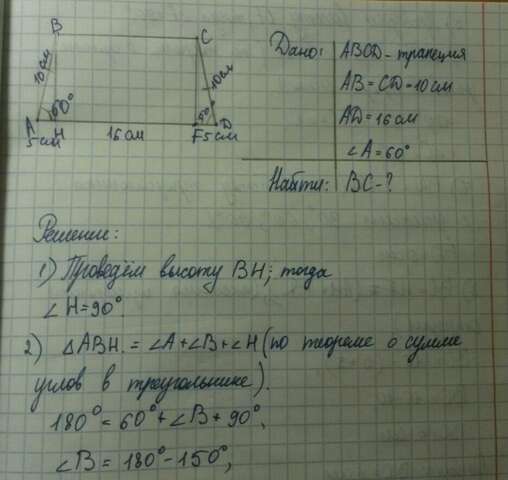 B
C
10см
10см
60°
A
H
F
D
5см
16см
5см
Дано:
ABCD - трапеция
AB = CD = 10см
AD = 16см
∠A = 60°
Найти:
BC - ?
Решение:
1) Проведём высоту BH; тогда
∠H = 90°.
2) △ABH. = ∠A + ∠B + ∠H (по теореме о сумме
углов в треугольнике).
180° = 60° + ∠B + 90°,
∠B = 180° - 150°,